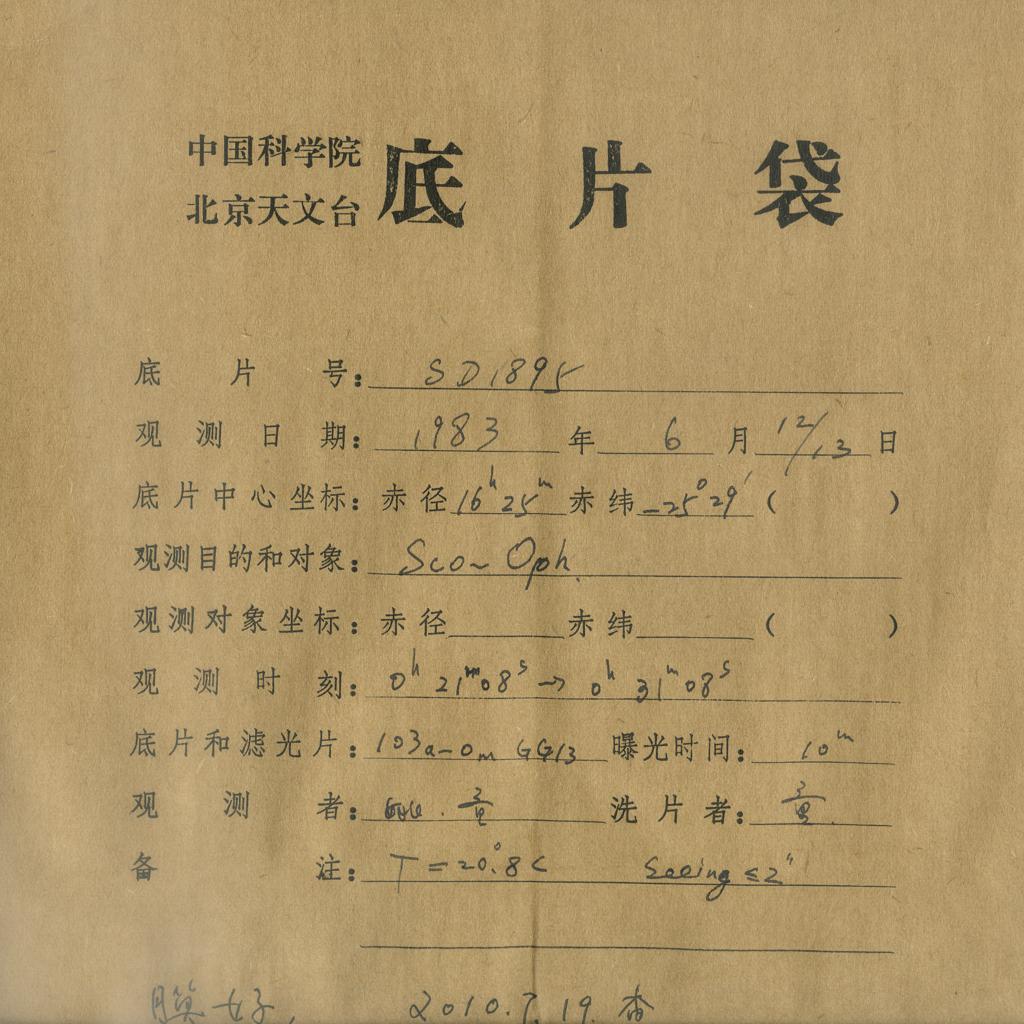 中国科学院
北京天文台
底片袋
底片号：SD1895
观测日期：1983年6月12/13日
底片中心坐标：赤径16h25m赤纬-25°29′（ ）
观测目的和对象：Sco~Oph.
观测对象坐标：赤径 赤纬 （ ）
观测时刻：0h21m08s→0h31m08s
底片和滤光片：103a-Om GG13 曝光时间：10m
观测者： 洗片者：
备注：T=20°.8C Seeing≤2″
膜好, 2010.7.19.